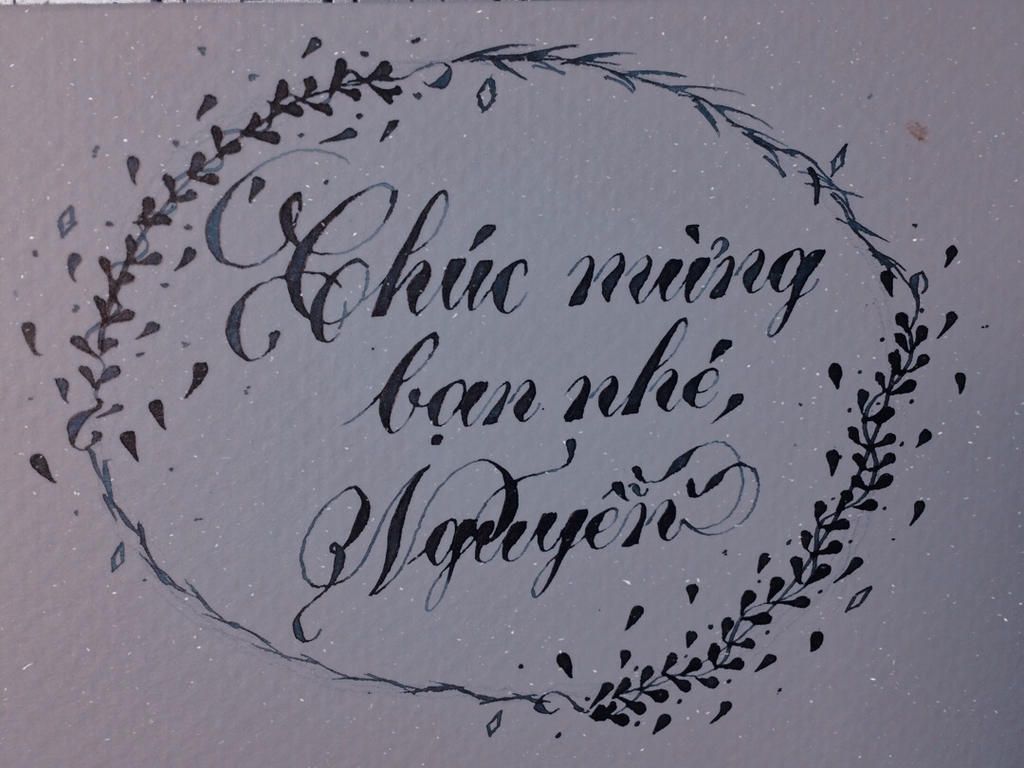 Chúc mừng
bạn nhé,
Nguyễn